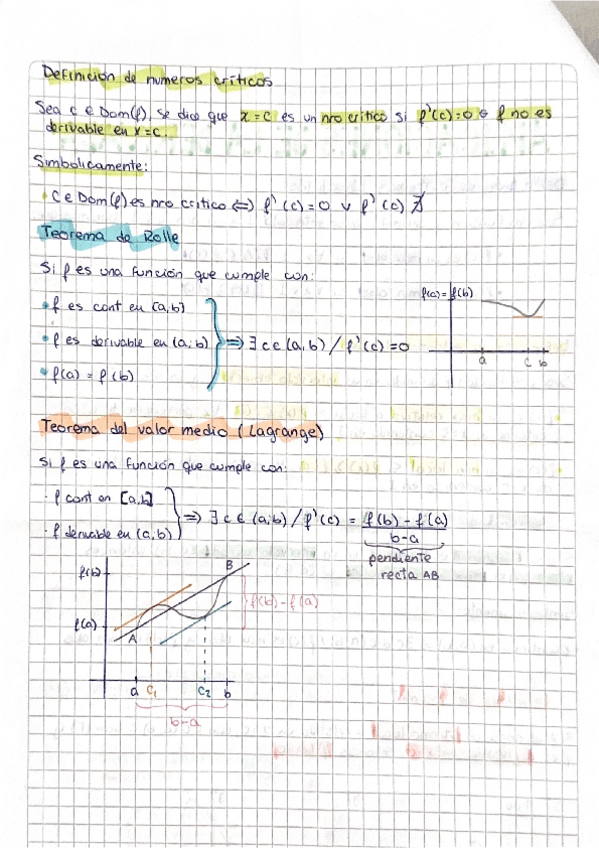 Definición de numeros críticos
Sea c ∈ Dom(f), se dice que x=c es un nro critico si f'(c)=0 o f no es
derivable en x=c.
Simbolicamente:
c ∈ Dom(f) es nro critico ⟺ f'(c)=0 ∨ f'(c) ∄
Teorema de Rolle
Si f es una función que cumple con:
• f es cont en [a,b]
• f es derivable en (a,b) ⟹ ∃ c ∈ (a,b) / f'(c)=0
• f(a) = f(b)
f(a)=f(b)
a c b
Teorema del valor medio (Lagrange)
Si f es una función que cumple con:
· f cont en [a,b]
· f derivable en (a,b) ⟹ ∃ c ∈ (a,b) / f'(c) = f(b) - f(a)
b-a
pendiente
recta AB
f(b) B
f(b)-f(a)
f(a)
A
a c₁ c₂ b
b-a